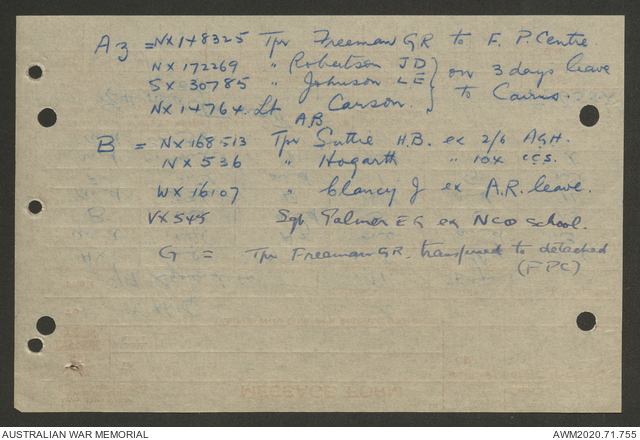 A3 = NX148325 Tpr Freeman GR to F. P. Centre
NX 172269 " Robertson JD } on 3 days leave
SX 30785 " Johnson LE } to Cairns.
NX 14764 Lt Carson. AB
B = NX168513 Tpr Suttie H.B. ex 2/6 AGH.
NX 536 " Hogarth " 10x CCS.
WX 16107 " Clancy J ex A.R. leave.
VX 545 Sgt Palmer EG ex NCO School.
G = Tpr Freeman GR. transferred to detached
(FPC)
MESSAGE FORM
AUSTRALIAN WAR MEMORIAL
AWM2020.71.755